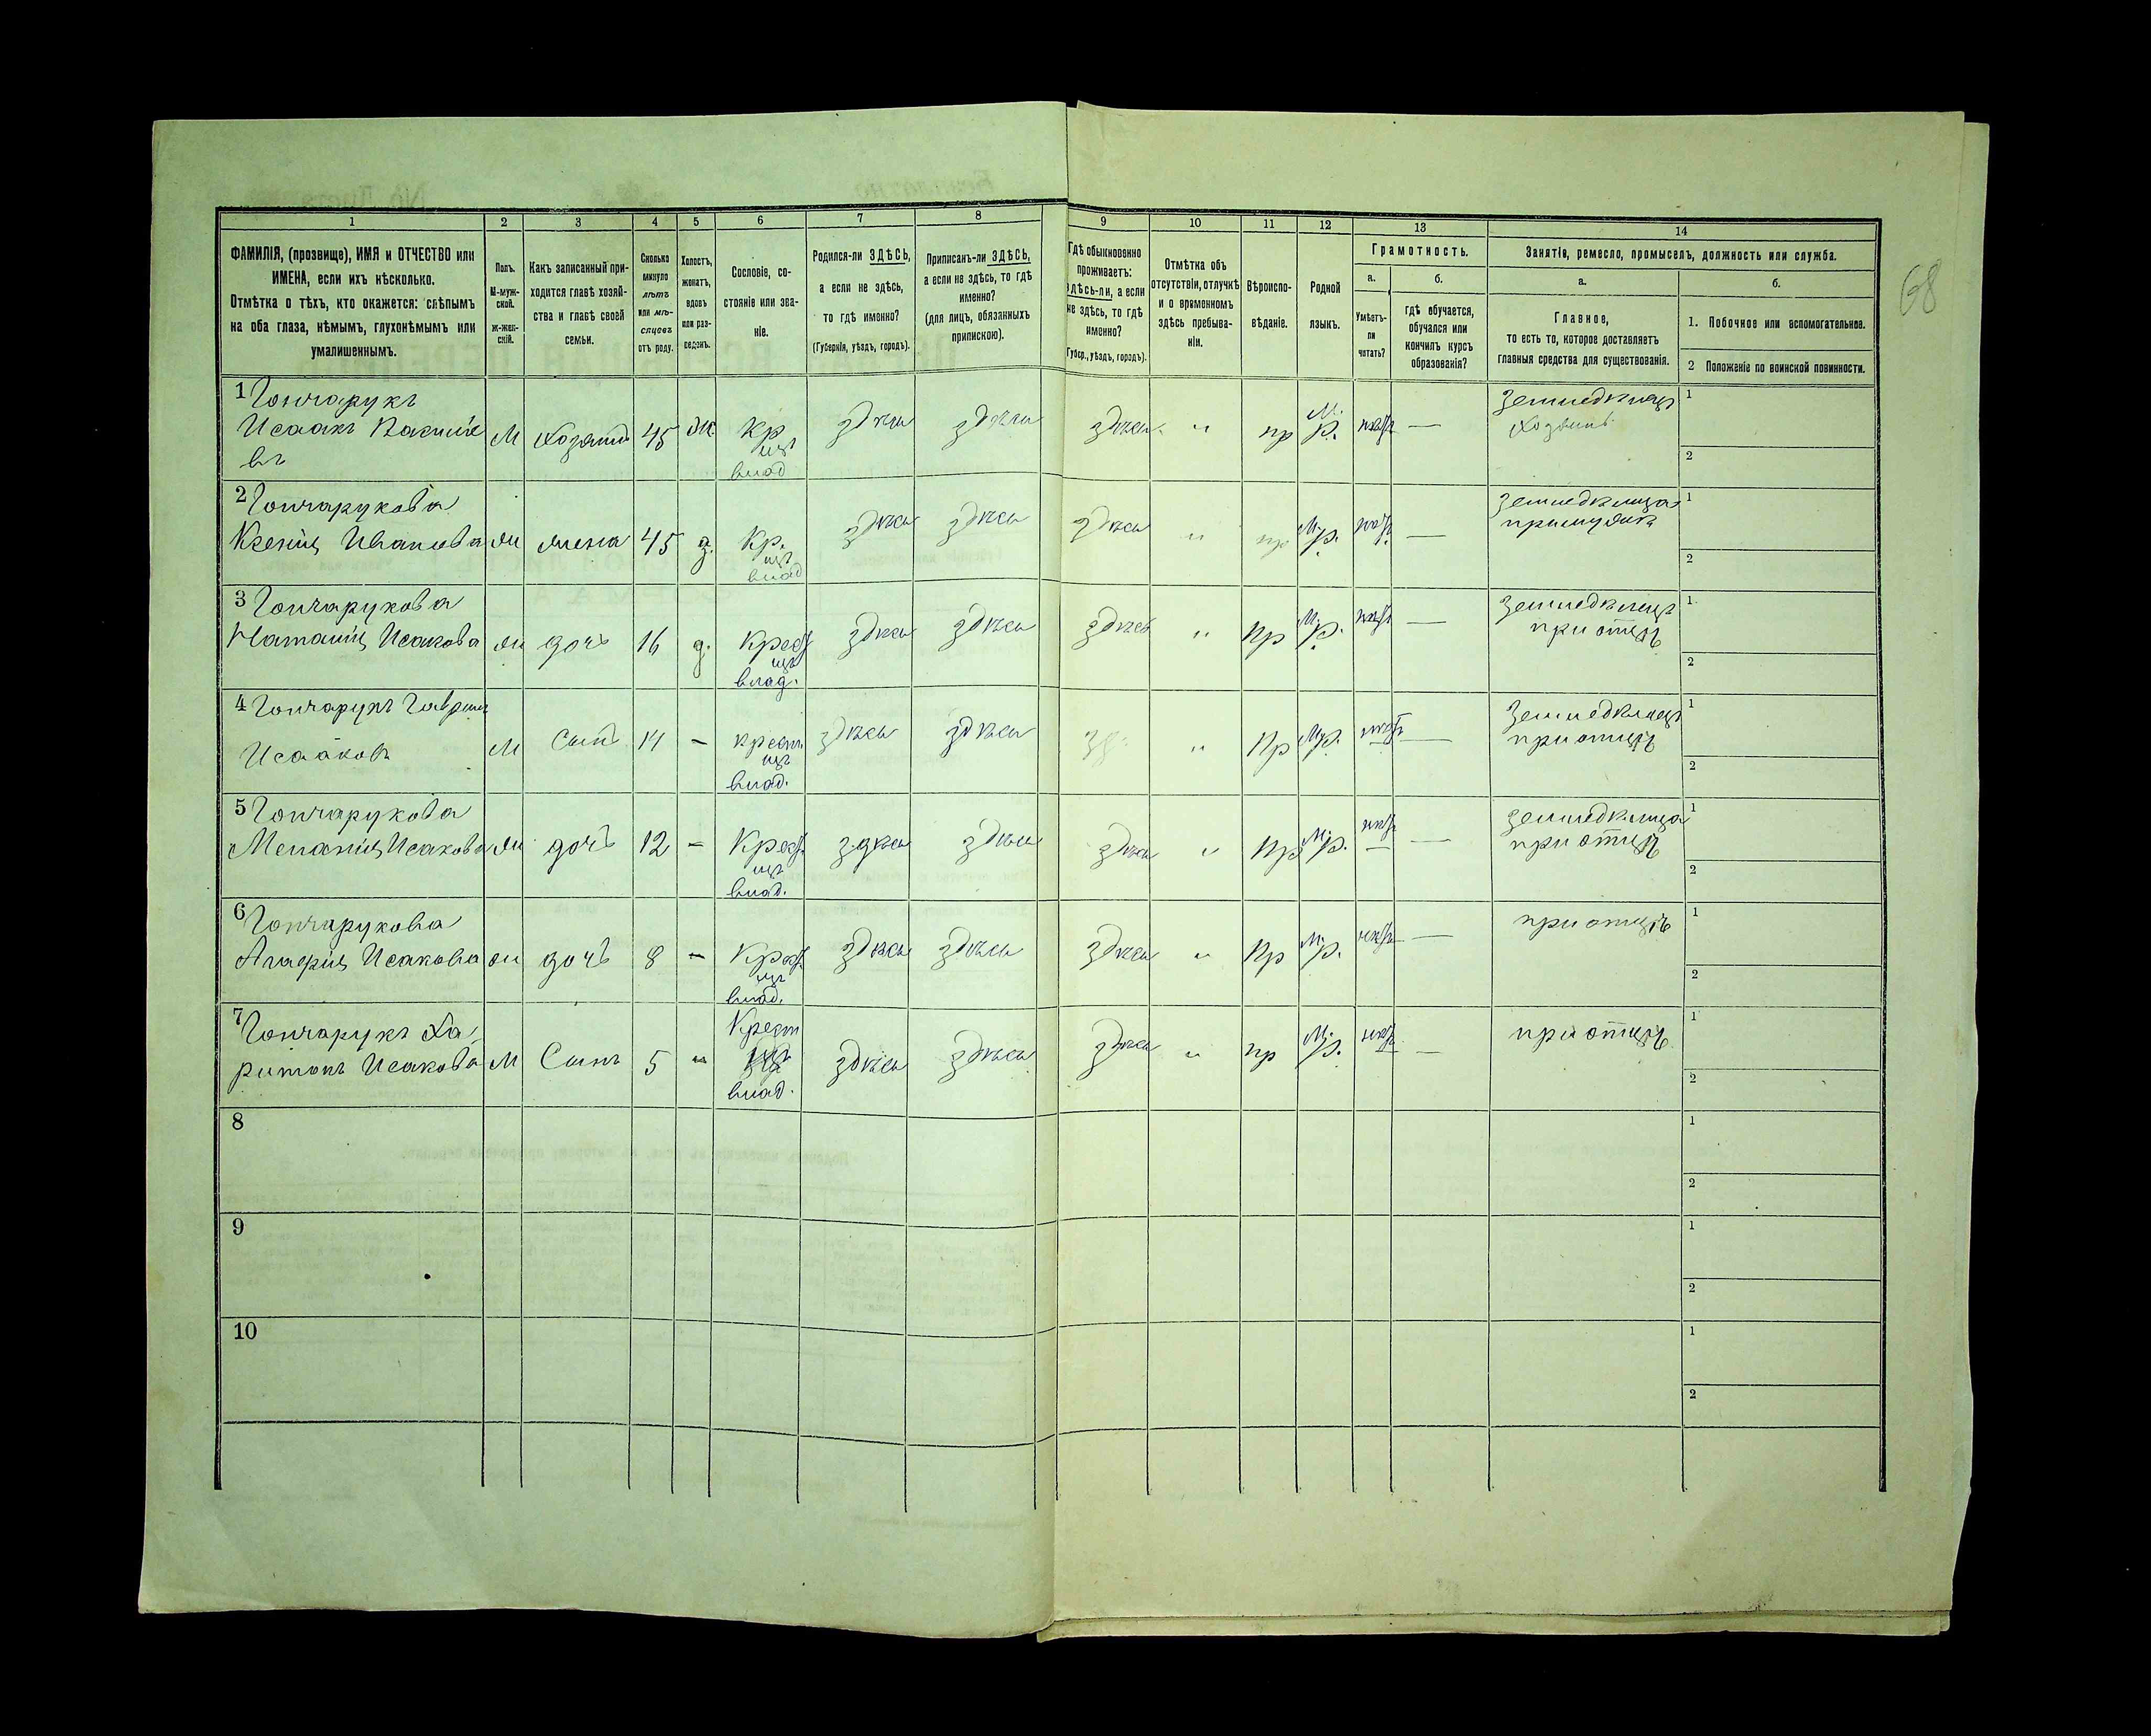 1 2 3 4 5 6 7 8 9 10 11 12 13 14
ФАМИЛІЯ, (прозвище), ИМЯ и ОТЧЕСТВО или
ИМЕНА, если ихъ нѣсколько.
Отмѣтка о тѣхъ, кто окажется: слѣпымъ
на оба глаза, нѣмымъ, глухонѣмымъ или
умалишеннымъ.
Полъ.
М-муж-
ской.
ж-жен-
скій.
Какъ записанный при-
ходится главѣ хозяй-
ства и главѣ своей
семьи.
Сколько
минуло
лѣтъ
или мѣ-
сяцевъ
отъ роду.
Холостъ,
женатъ,
вдовъ
или раз-
веденъ.
Сословіе, со-
стояніе или зва-
ніе.
Родился-ли ЗДѢСЬ,
а если не здѣсь,
то гдѣ именно?
(Губернія, уѣздъ, городъ).
Приписанъ-ли ЗДѢСЬ,
а если не здѣсь, то гдѣ
именно?
(для лицъ, обязанныхъ
припискою).
Гдѣ обыкновенно
проживаетъ:
здѣсь-ли, а если
не здѣсь, то гдѣ
именно?
(Губер., уѣздъ, городъ).
Отмѣтка объ
отсутствіи, отлучкѣ
и о временномъ
здѣсь пребыва-
ніи.
Вѣроиспо-
вѣданіе.
Родной
языкъ.
Грамотность.
а.
Умѣетъ-
ли
читать?
б.
Гдѣ обучается,
обучался или
кончилъ курсъ
образованія?
Занятіе, ремесло, промыселъ, должность или служба.
а.
Главное,
то есть то, которое доставляетъ
главныя средства для существованія.
б.
1. Побочное или вспомогательное.
2 Положеніе по воинской повинности.
68
1 Гончарукъ
Исаакъ
въ
М 45 ж Кр
влад
здѣсь здѣсь здѣсь " пр М.р. —
Земледѣлецъ
Хозяинъ
1
2
2 Гончарукова
Ксенія Иванова жена 45 з. Кр.
влад
здѣсь здѣсь здѣсь " пр М.р. —
земледѣлица
при мужѣ
1
2
3 Гончарукова
Наталія Исакова дочь 16 д. Крест
влад.
здѣсь здѣсь здѣсь " пр М.р. —
земледѣлецъ
при отцѣ
1
2
4 Гончарукъ Гаврил
Исааковъ М Сынъ 14 - крест
влад.
здѣсь здѣсь зд. " Пр М.р. —
Земледѣлецъ
при отцѣ
1
2
5 Гончарукова
Меланія Исакова дочь 12 - Крест.
влад.
здѣсь здѣсь здѣсь " Пр М.р. —
земледѣлица
при отцѣ
1
2
6 Гончарукова
Агафія Исакова дочь 8 - Крест.
влад.
здѣсь здѣсь здѣсь " Пр М.р. —
при отцѣ
1
2
7 Гончарукъ Ха-
ритонъ Исакова М Сынъ 5 " Крест
влад.
здѣсь здѣсь здѣсь " пр М.р. —
при отцѣ
1
2
8
1
2
9
1
2
10
1
2